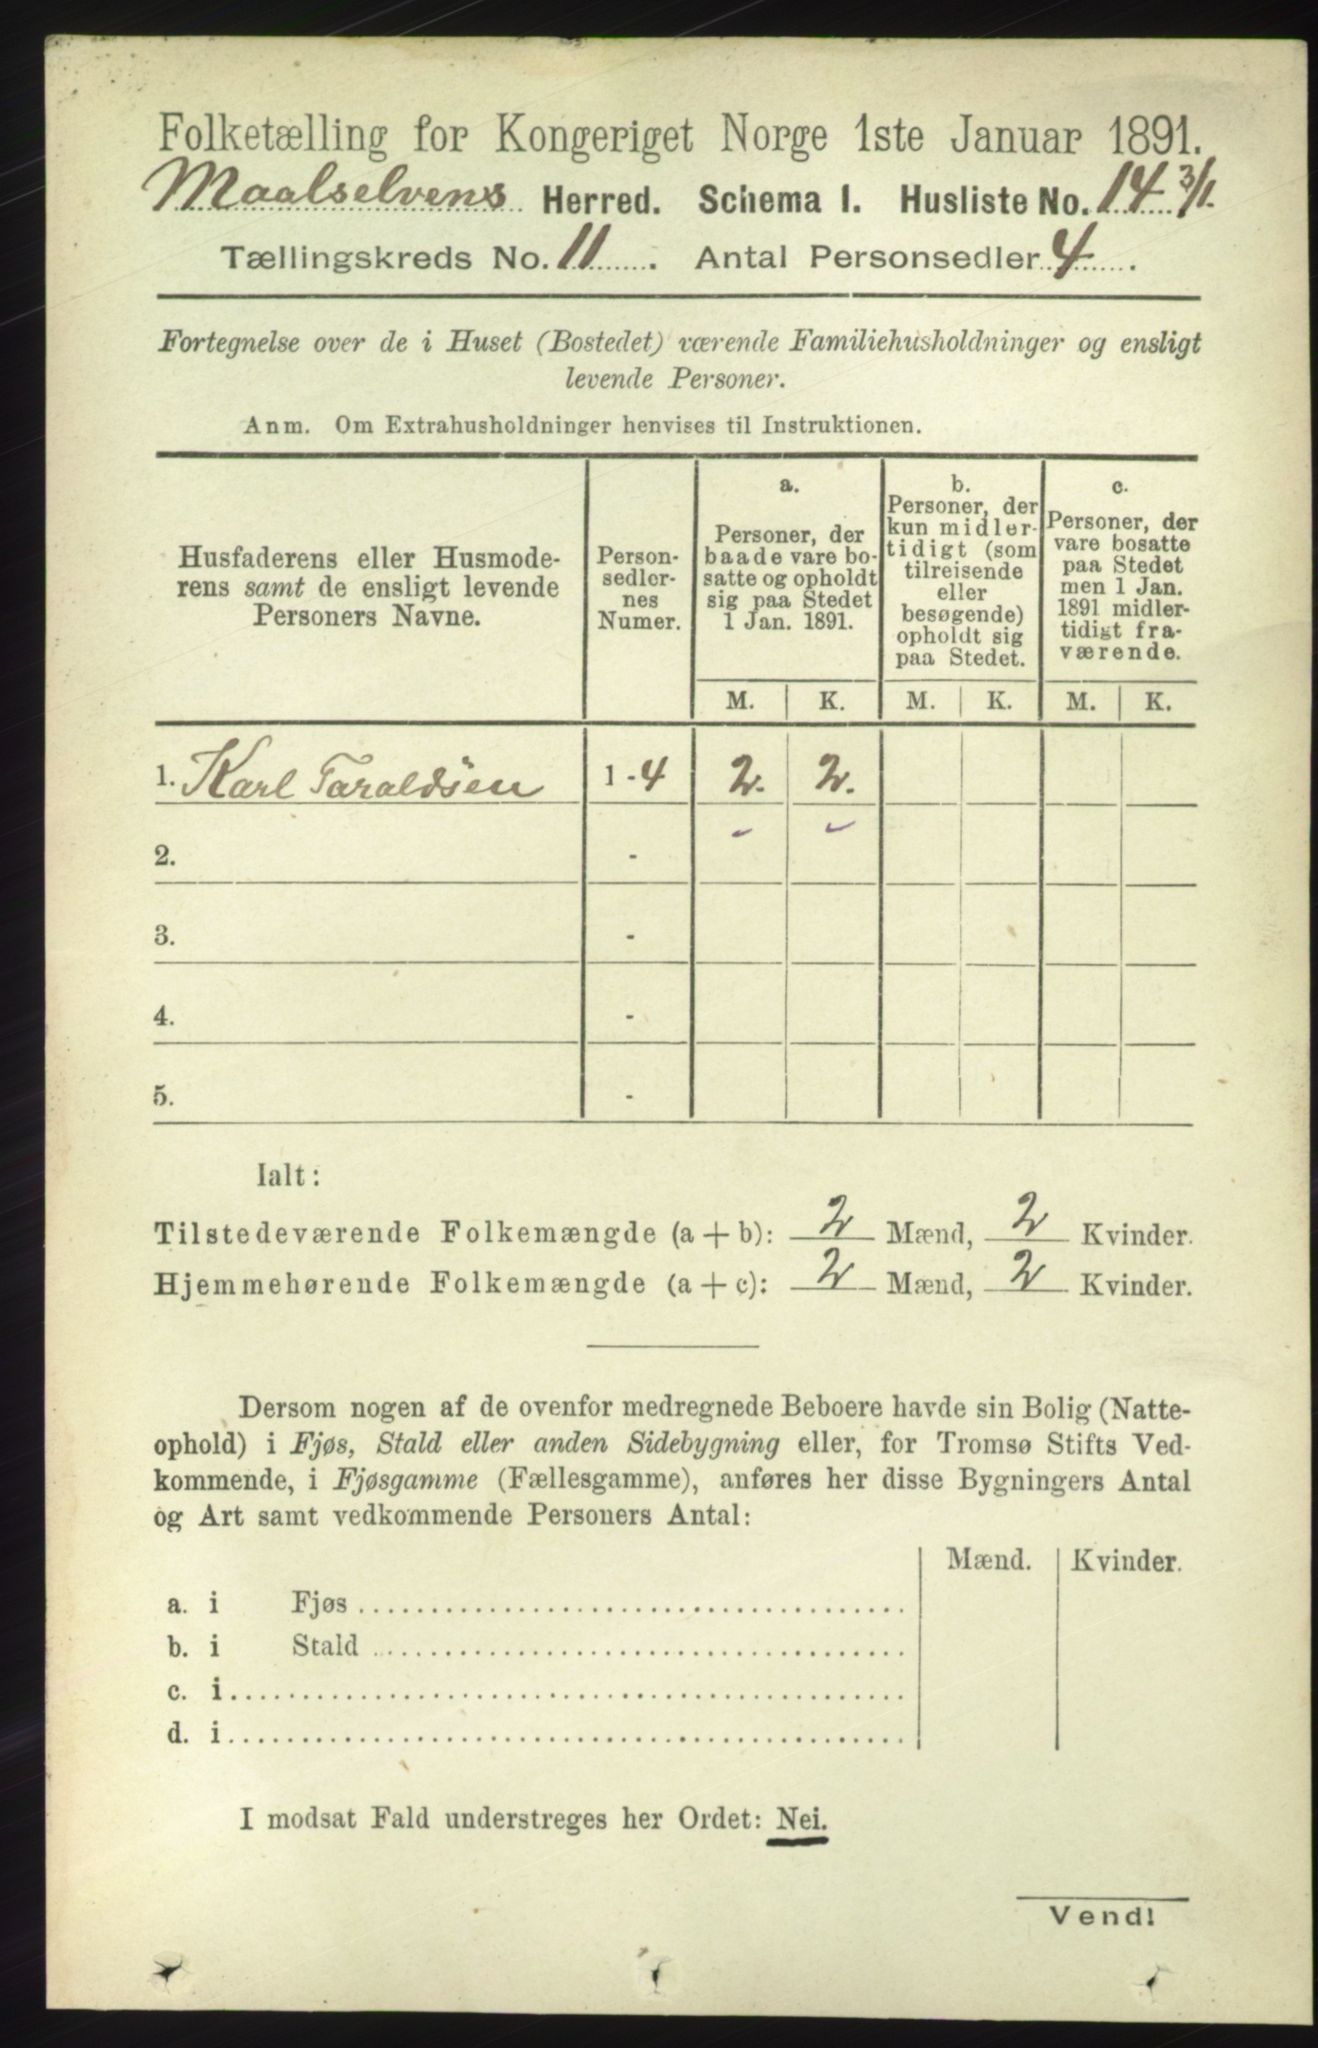 Folketælling for Kongeriget Norge 1ste Januar 1891.
Maalselvens Herred. Schema I. Husliste No. 14 3/1.
Tællingskreds No. 11. Antal Personsedler 4.
Fortegnelse over de i Huset (Bostedet) værende Familiehusholdninger og ensligt
levende Personer.
Anm. Om Extrahusholdninger henvises til Instruktionen.
Husfaderens eller Husmode-
rens samt de ensligt levende
Personers Navne.
Person-
sedler-
nes
Numer.
a.
Personer, der
baade vare bo-
satte og opholdt
sig paa Stedet
1 Jan. 1891.
b.
Personer, der
kun midler-
tidigt (som
tilreisende
eller
besøgende)
opholdt sig
paa Stedet.
c.
Personer, der
vare bosatte
paa Stedet
men 1 Jan.
1891 midler-
tidigt fra-
værende.
M. K. M. K. M. K.
1. Karl Taraldsen 1 - 4 2. 2.
2. -
3. -
4. -
5. -
Ialt:
Tilstedeværende Folkemængde (a + b): 2 Mænd, 2 Kvinder.
Hjemmehørende Folkemængde (a + c): 2 Mænd, 2 Kvinder.
Dersom nogen af de ovenfor medregnede Beboere havde sin Bolig (Natte-
ophold) i Fjøs, Stald eller anden Sidebygning eller, for Tromsø Stifts Ved-
kommende, i Fjøsgamme (Fællesgamme), anføres her disse Bygningers Antal
og Art samt vedkommende Personers Antal:
Mænd. Kvinder.
a. i Fjøs
b. i Stald
c. i
d. i
I modsat Fald understreges her Ordet: Nei.
Vend!